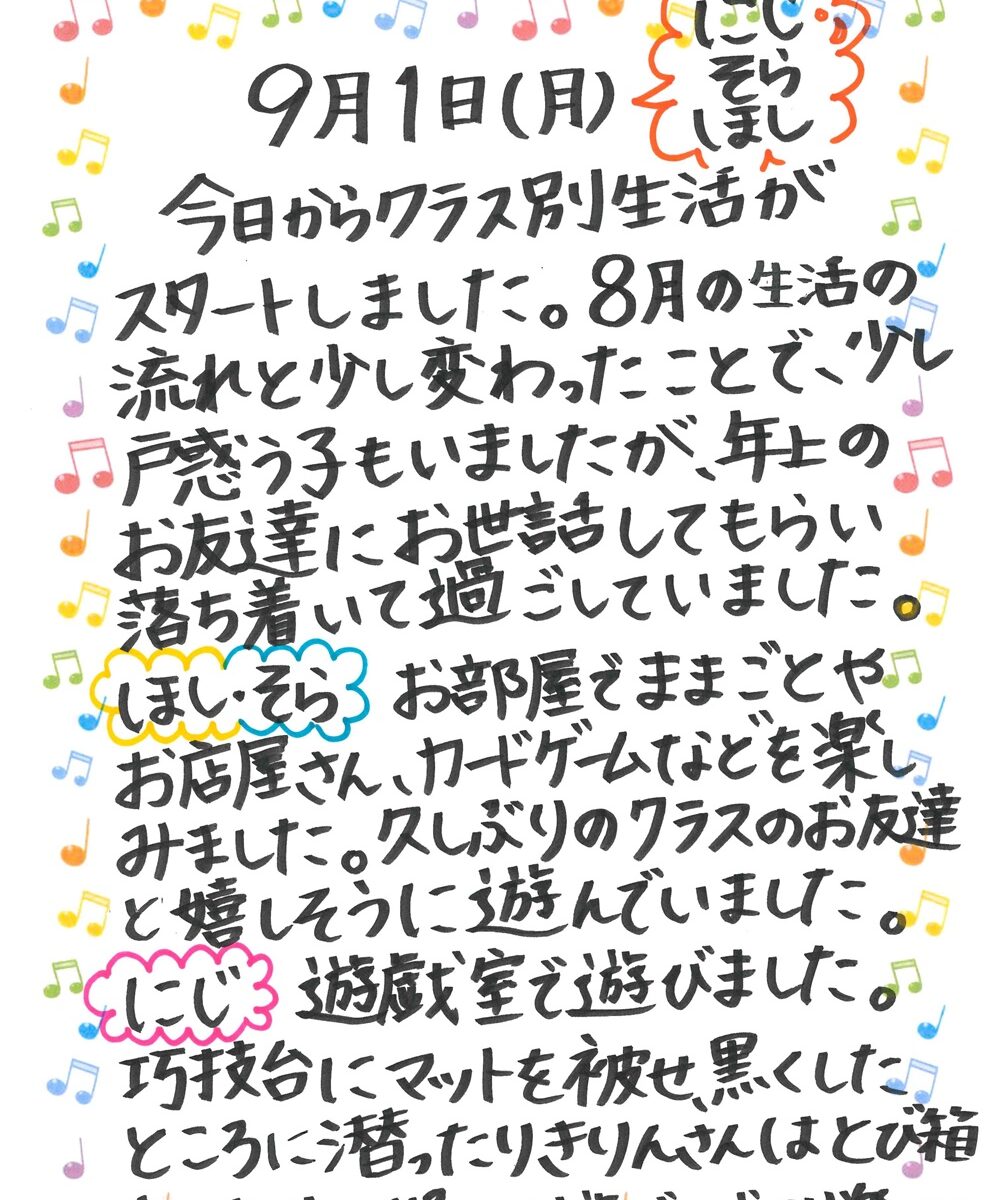 にじ
そら
ほし
9月1日(月)
今日からクラス別生活が
スタートしました。8月の生活の
流れと少し変わったことで、少し
戸惑う子もいましたが、年上の
お友達にお世話してもらい
落ち着いて過ごしていました。
ほし・そら お部屋でままごとや
お店屋さん、カードゲームなどを楽し
みました。久しぶりのクラスのお友達
と嬉しそうに遊んでいました。
にじ 遊戯室で遊びました。
巧技台にマットを被せ、黒くした
ところに潜ったりきりんさんはとび箱